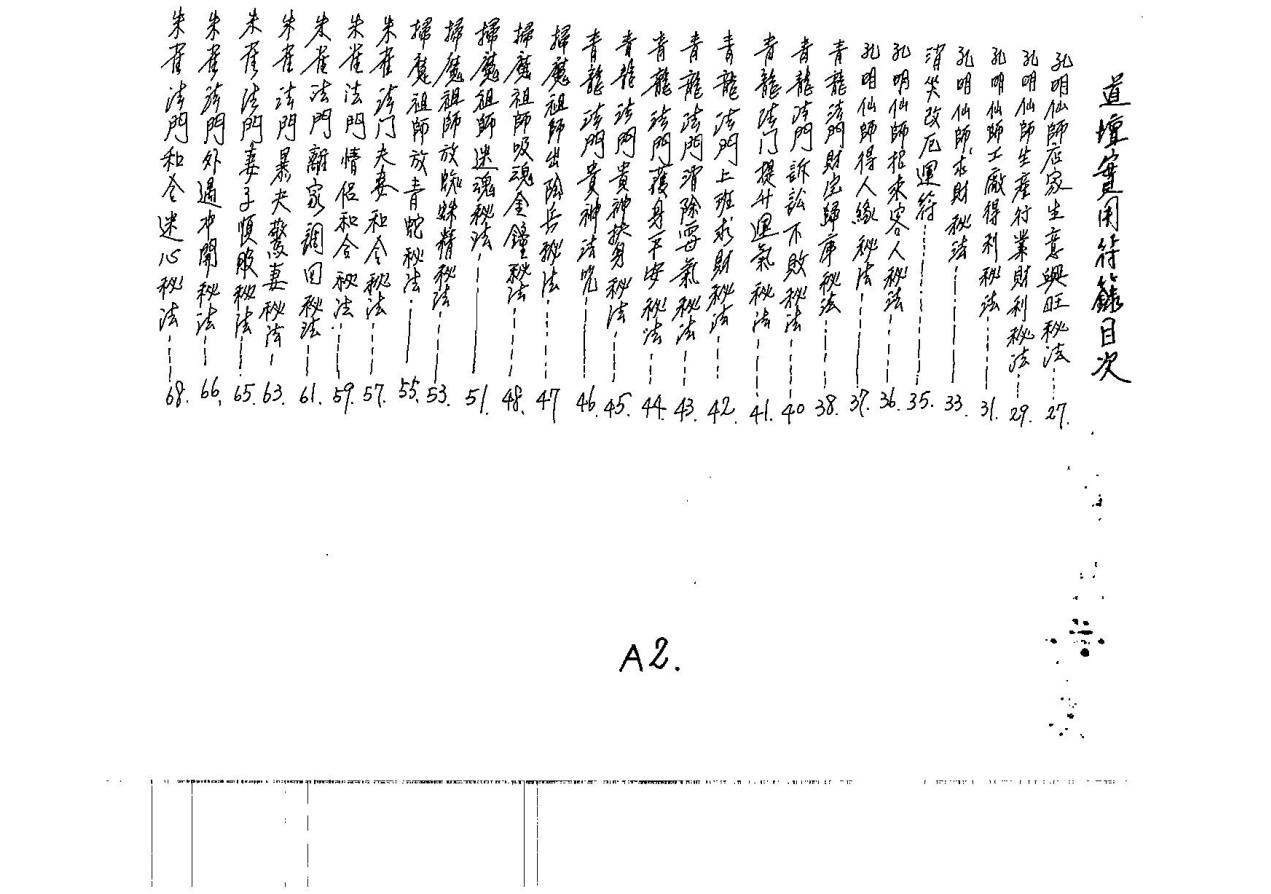 道壇實用符籙目次
孔明仙師店家生意興旺秘法……27.
孔明仙師生產行業財利秘法……29.
孔明仙師工廠得利秘法……31.
孔明仙師求財秘法……33.
消災改厄運符……35.
孔明仙師招來客人秘法……36.
孔明仙師得人緣秘法……37.
青龍法門財宝歸庫秘法……38.
青龍法門訴訟不敗秘法……40
青龍法门提升運氣秘法……41.
青龍法門上班求財秘法……42.
青龍法門消除霉氣秘法……43.
青龍法門護身平安秘法……44.
青龍法門貴神扶身秘法……45.
青龍法門貴神法咒……46.
掃魔祖師出陰兵秘法……47
掃魔祖師吸魂金鐘秘法……48.
掃魔祖師迷魂秘法……51.
掃魔祖師放蜘蛛精秘法……53.
掃魔祖師放青蛇秘法……55.
朱雀法门夫妻和合秘法……57.
朱雀法門情侶和合秘法……59.
朱雀法門離家調回秘法……61.
朱雀法門暴夫驚妻秘法……63.
朱雀法門妻子順服秘法……65.
朱雀法門外遇冲開秘法……66.
朱雀法門和合迷心秘法……68.
A2.